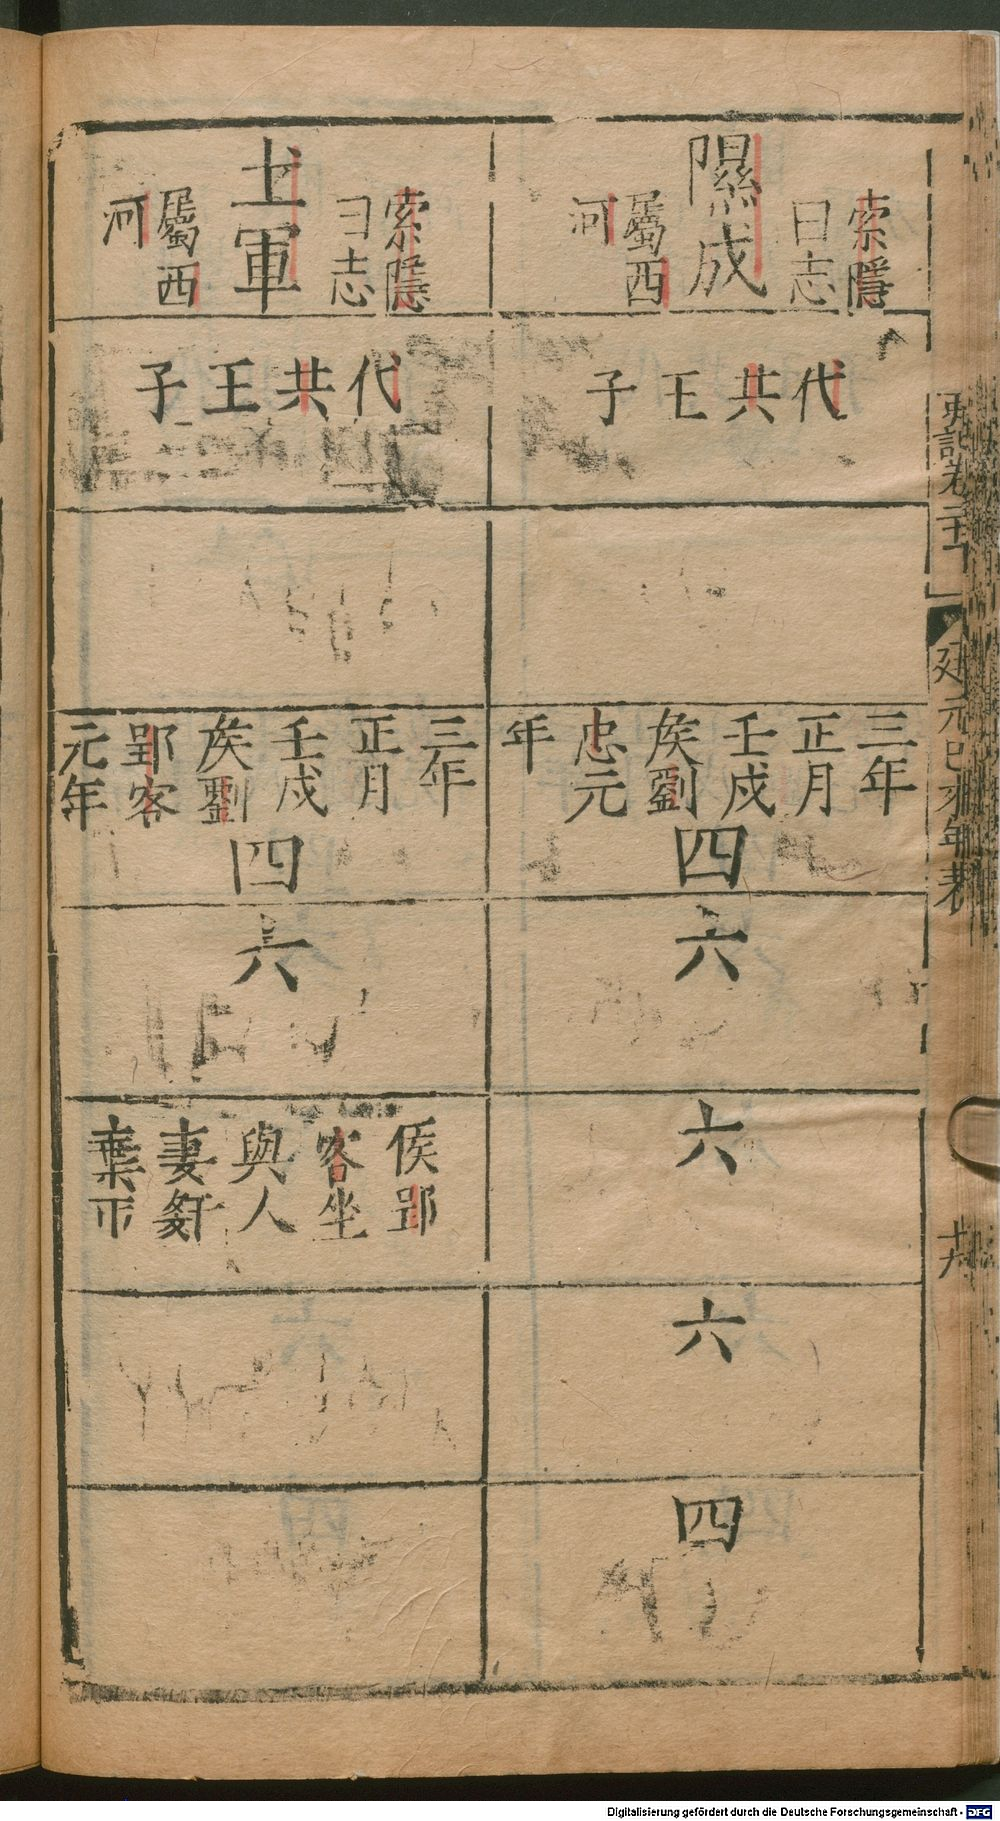 隰成
索隱
曰志
屬西
河
代共王子
三年
正月
壬戍
侯劉
忠元
年
四
六
六
六
四
土軍
索隱
曰志
屬西
河
代共王子
三年
正月
壬戍
侯劉
郢客
元年
四
六
侯郢
客坐
與人
妻姧
棄市
史記卷二十
建元已來年表
Digitalisierung gefördert durch die Deutsche Forschungsgemeinschaft - DFG